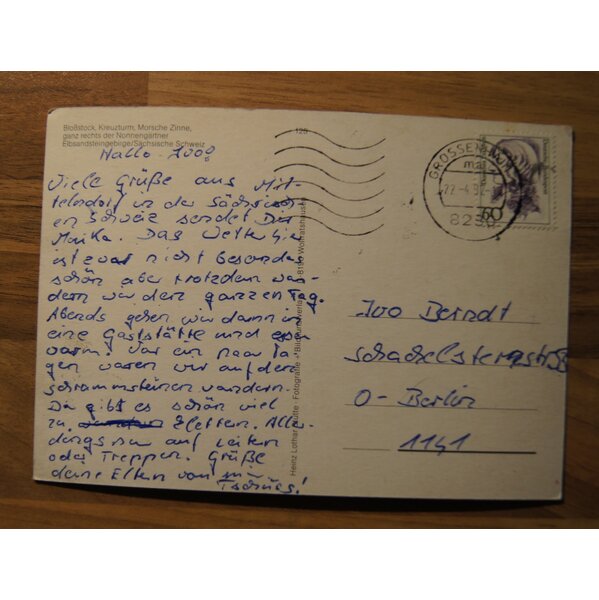 Bloßstock, Kreuzturm, Morsche Zinne,
ganz rechts der Nonnengärtner
Elbsandsteingebirge/Sächsische Schweiz
Hallo Ivo!
Viele Grüße aus Mit-
telndorf in der Sächsisch-
en Schweiz sendet Dir
Maika. Das Wetter hier
ist zwar nicht besonders
schön aber trotzdem wan-
dern wir den ganzen Tag.
Abends gehen wir dann in
eine Gaststätte und essen
warm. Vor ein paar Ta-
gen waren wir auf den
Schrammsteinen wandern.
Da gibt es schön viel
zu klettern. Aller-
dings nur auf Leitern
oder Treppen. Grüße
deine Eltern von mir
Tschüss!
120
Heinz Lothar · Fotografie · Bild
8190 Wolfratshausen
GROSSENHAIN
22.-4.92
60
Ivo Berndt
O-Berlin
1141